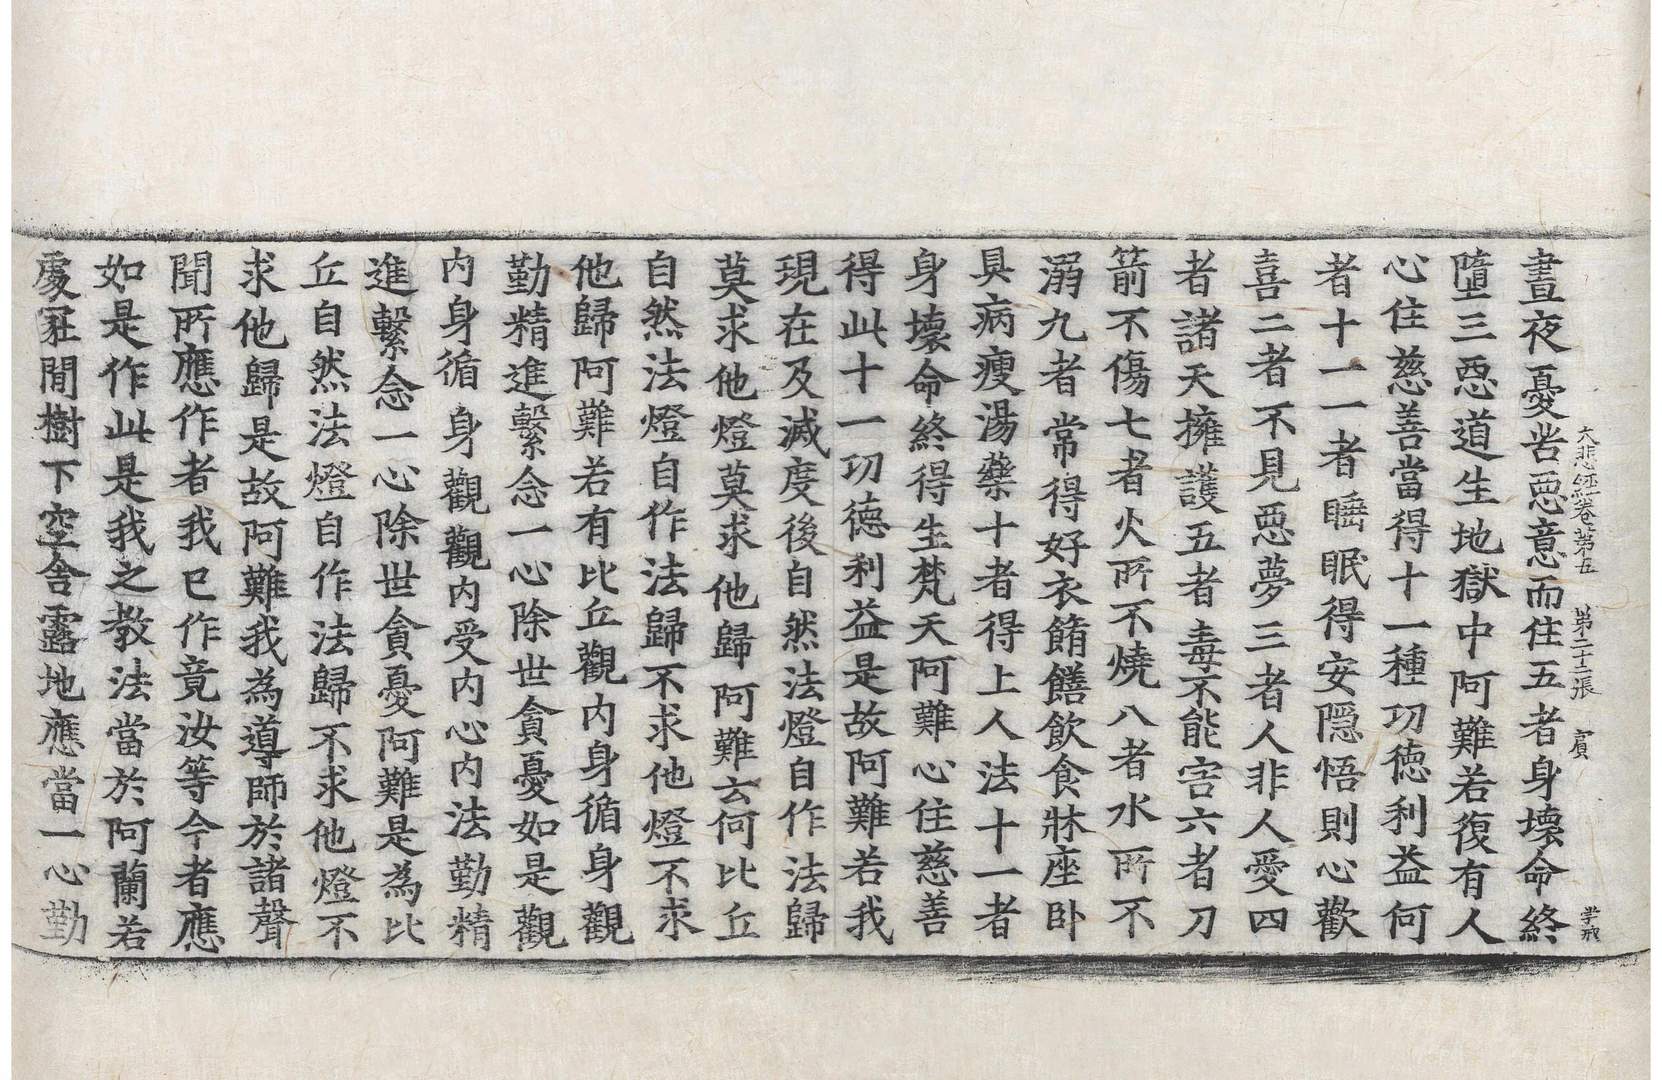 大悲經卷第五 第二十三張 賓
晝夜憂苦惡意而住五者身壞命終
墮三惡道生地獄中阿難若復有人
心住慈善當得十一種功德利益何
者十一一者睡眠得安隱悟則心歡
喜二者不見惡夢三者人非人愛四
者諸天擁護五者毒不能害六者刀
箭不傷七者火所不燒八者水所不
溺九者常得好衣餚饍飲食牀座卧
具病瘦湯藥十者得上人法十一者
身壞命終得生梵天阿難心住慈善
得此十一功德利益是故阿難若我
現在及滅度後自然法燈自作法歸
莫求他燈莫求他歸阿難云何比丘
自然法燈自作法歸不求他燈不求
他歸阿難若有比丘觀內身循身觀
勤精進繫念一心除世貪憂如是觀
內身循身觀觀內受內心內法勤精
進繫念一心除世貪憂阿難是為比
丘自然法燈自作法歸不求他燈不
求他歸是故阿難我為導師於諸聲
聞所應作者我已作竟汝等今者應
如是作此是我之教法當於阿蘭若
處冢閒樹下空舍露地應當一心勤